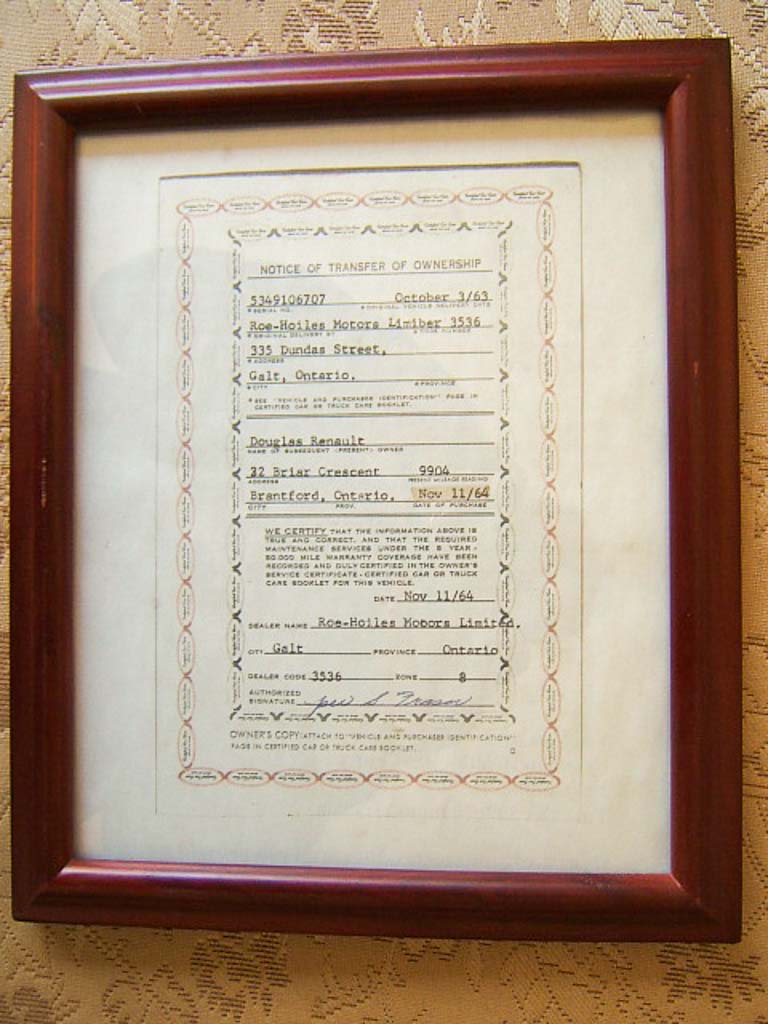 NOTICE OF TRANSFER OF OWNERSHIP
5349106707 October 3/63
SERIAL NO. ORIGINAL VEHICLE DELIVERY DATE
Roe-Hoiles Motors Limiber 3536
ORIGINAL DELIVERY BY
335 Dundas Street,
ADDRESS
Galt, Ontario.
CITY PROVINCE
SEE "VEHICLE AND PURCHASER IDENTIFICATION" PAGE IN
CERTIFIED CAR OR TRUCK CARE BOOKLET.
Douglas Renault
NAME OF SUBSEQUENT (PRESENT) OWNER
32 Briar Crescent 9904
ADDRESS PRESENT MILEAGE READING
Brantford, Ontario. Nov 11/64
CITY PROV. DATE OF PURCHASE
WE CERTIFY THAT THE INFORMATION ABOVE IS
TRUE AND CORRECT, AND THAT THE REQUIRED
MAINTENANCE SERVICES UNDER THE 5 YEAR -
50,000 MILE WARRANTY COVERAGE HAVE BEEN
RECORDED AND DULY CERTIFIED IN THE OWNER'S
SERVICE CERTIFICATE - CERTIFIED CAR OR TRUCK
CARE BOOKLET FOR THIS VEHICLE.
DATE Nov 11/64
DEALER NAME Roe-Hoiles Mobors Limited.
CITY Galt PROVINCE Ontario
DEALER CODE 3536 ZONE 8
AUTHORIZED
SIGNATURE
OWNER'S COPY: ATTACH TO "VEHICLE AND PURCHASER IDENTIFICATION"
PAGE IN CERTIFIED CAR OR TRUCK CARE BOOKLET.